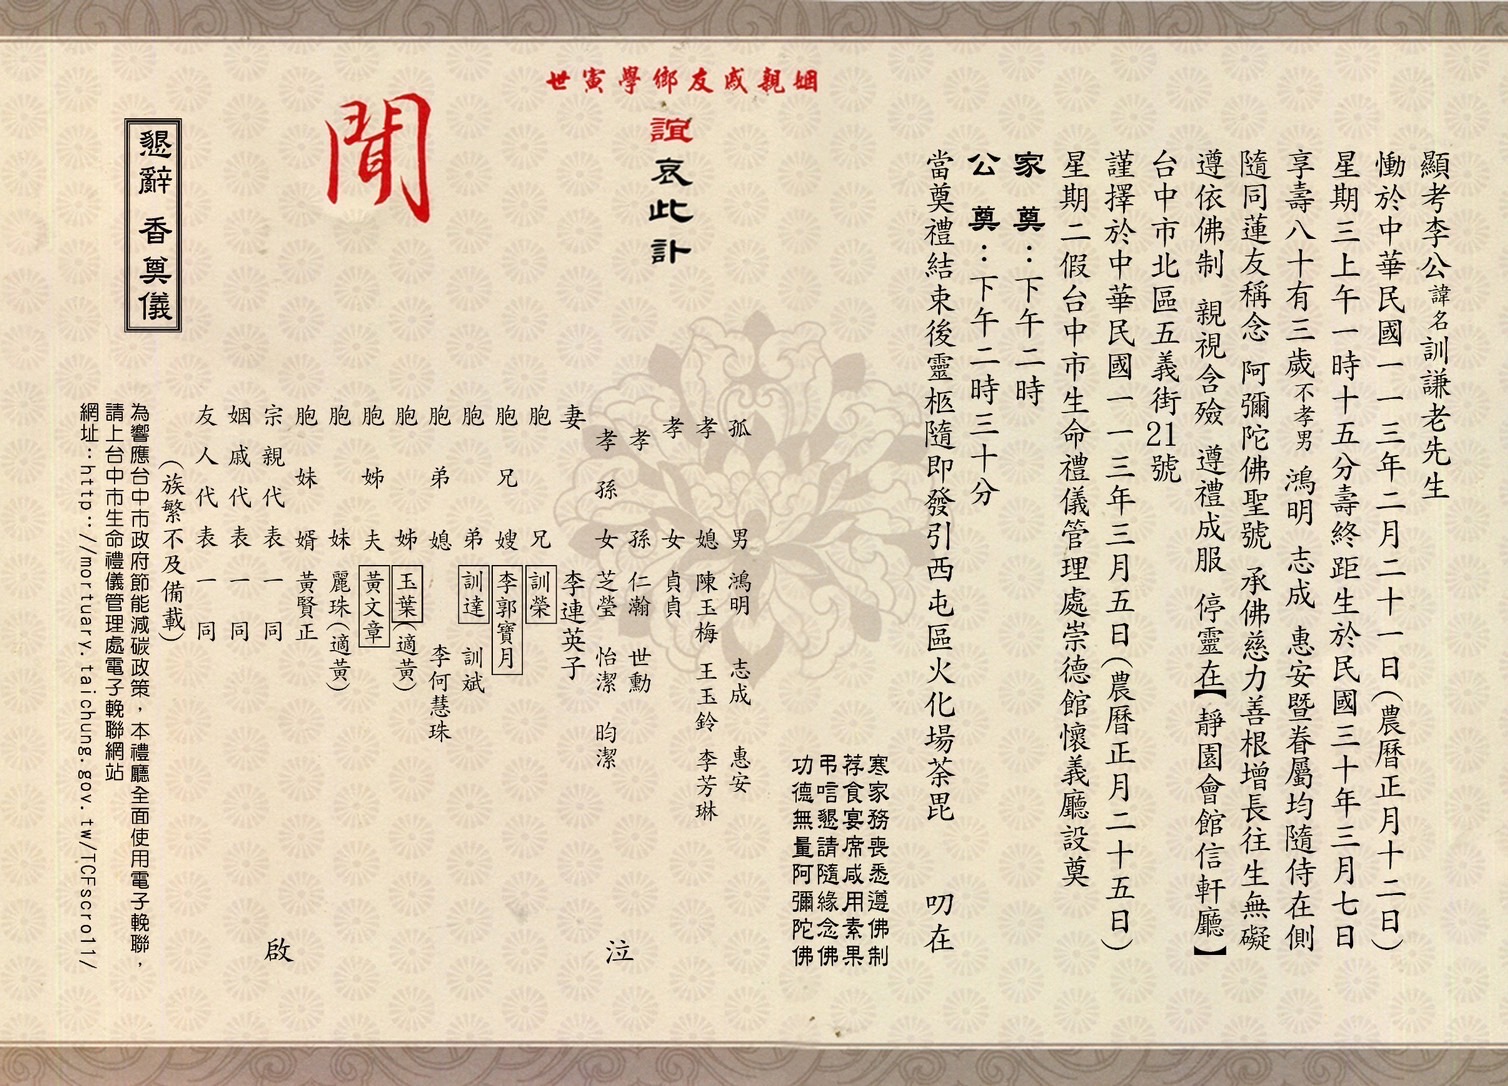 顯考李公諱名訓謙老先生
慟於中華民國一一三年二月二十一日(農曆正月十二日)
星期三上午一時十五分壽終距生於民國三十年三月七日
享壽八十有三歲不孝男 鴻明 志成 惠安暨眷屬均隨侍在側
隨同蓮友稱念 阿彌陀佛聖號 承佛慈力善根增長往生無礙
遵依佛制 親視含殮 遵禮成服 停靈在【靜園會館信軒廳】
台中市北區五義街21號
謹擇於中華民國一一三年三月五日(農曆正月二十五日)
星期二假台中市生命禮儀管理處崇德館懷義廳設奠
家奠:下午二時
公奠:下午二時三十分
當奠禮結束後靈柩隨即發引西屯區火化場荼毘 叨在
姻親戚友鄉學寅世
誼哀此訃
聞
寒家務喪悉遵佛制
荐食宴席咸用素果
弔唁懇請隨緣念佛
功德無量阿彌陀佛
孤男 鴻明 志成 惠安
孝媳 陳玉梅 王玉鈴 李芳琳
孝女 貞貞
孝孫 仁瀚 世勳
孝孫女 芝瑩 怡潔 昀潔
泣
妻 李連英子
胞兄 訓榮
胞兄嫂 李郭寶月
胞弟 訓達 訓斌
胞弟媳 李何慧珠
胞姊 玉葉(適黃)
胞姊夫 黃文章
胞妹 麗珠(適黃)
胞妹婿 黃賢正
宗親代表一同
姻戚代表一同
友人代表一同
(族繁不及備載)
啟
懇辭 香奠儀
為響應台中市政府節能減碳政策,本禮廳全面使用電子輓聯,
請上台中市生命禮儀管理處電子輓聯網站
網址:http://mortuary.taichung.gov.tw/TCFscroll/